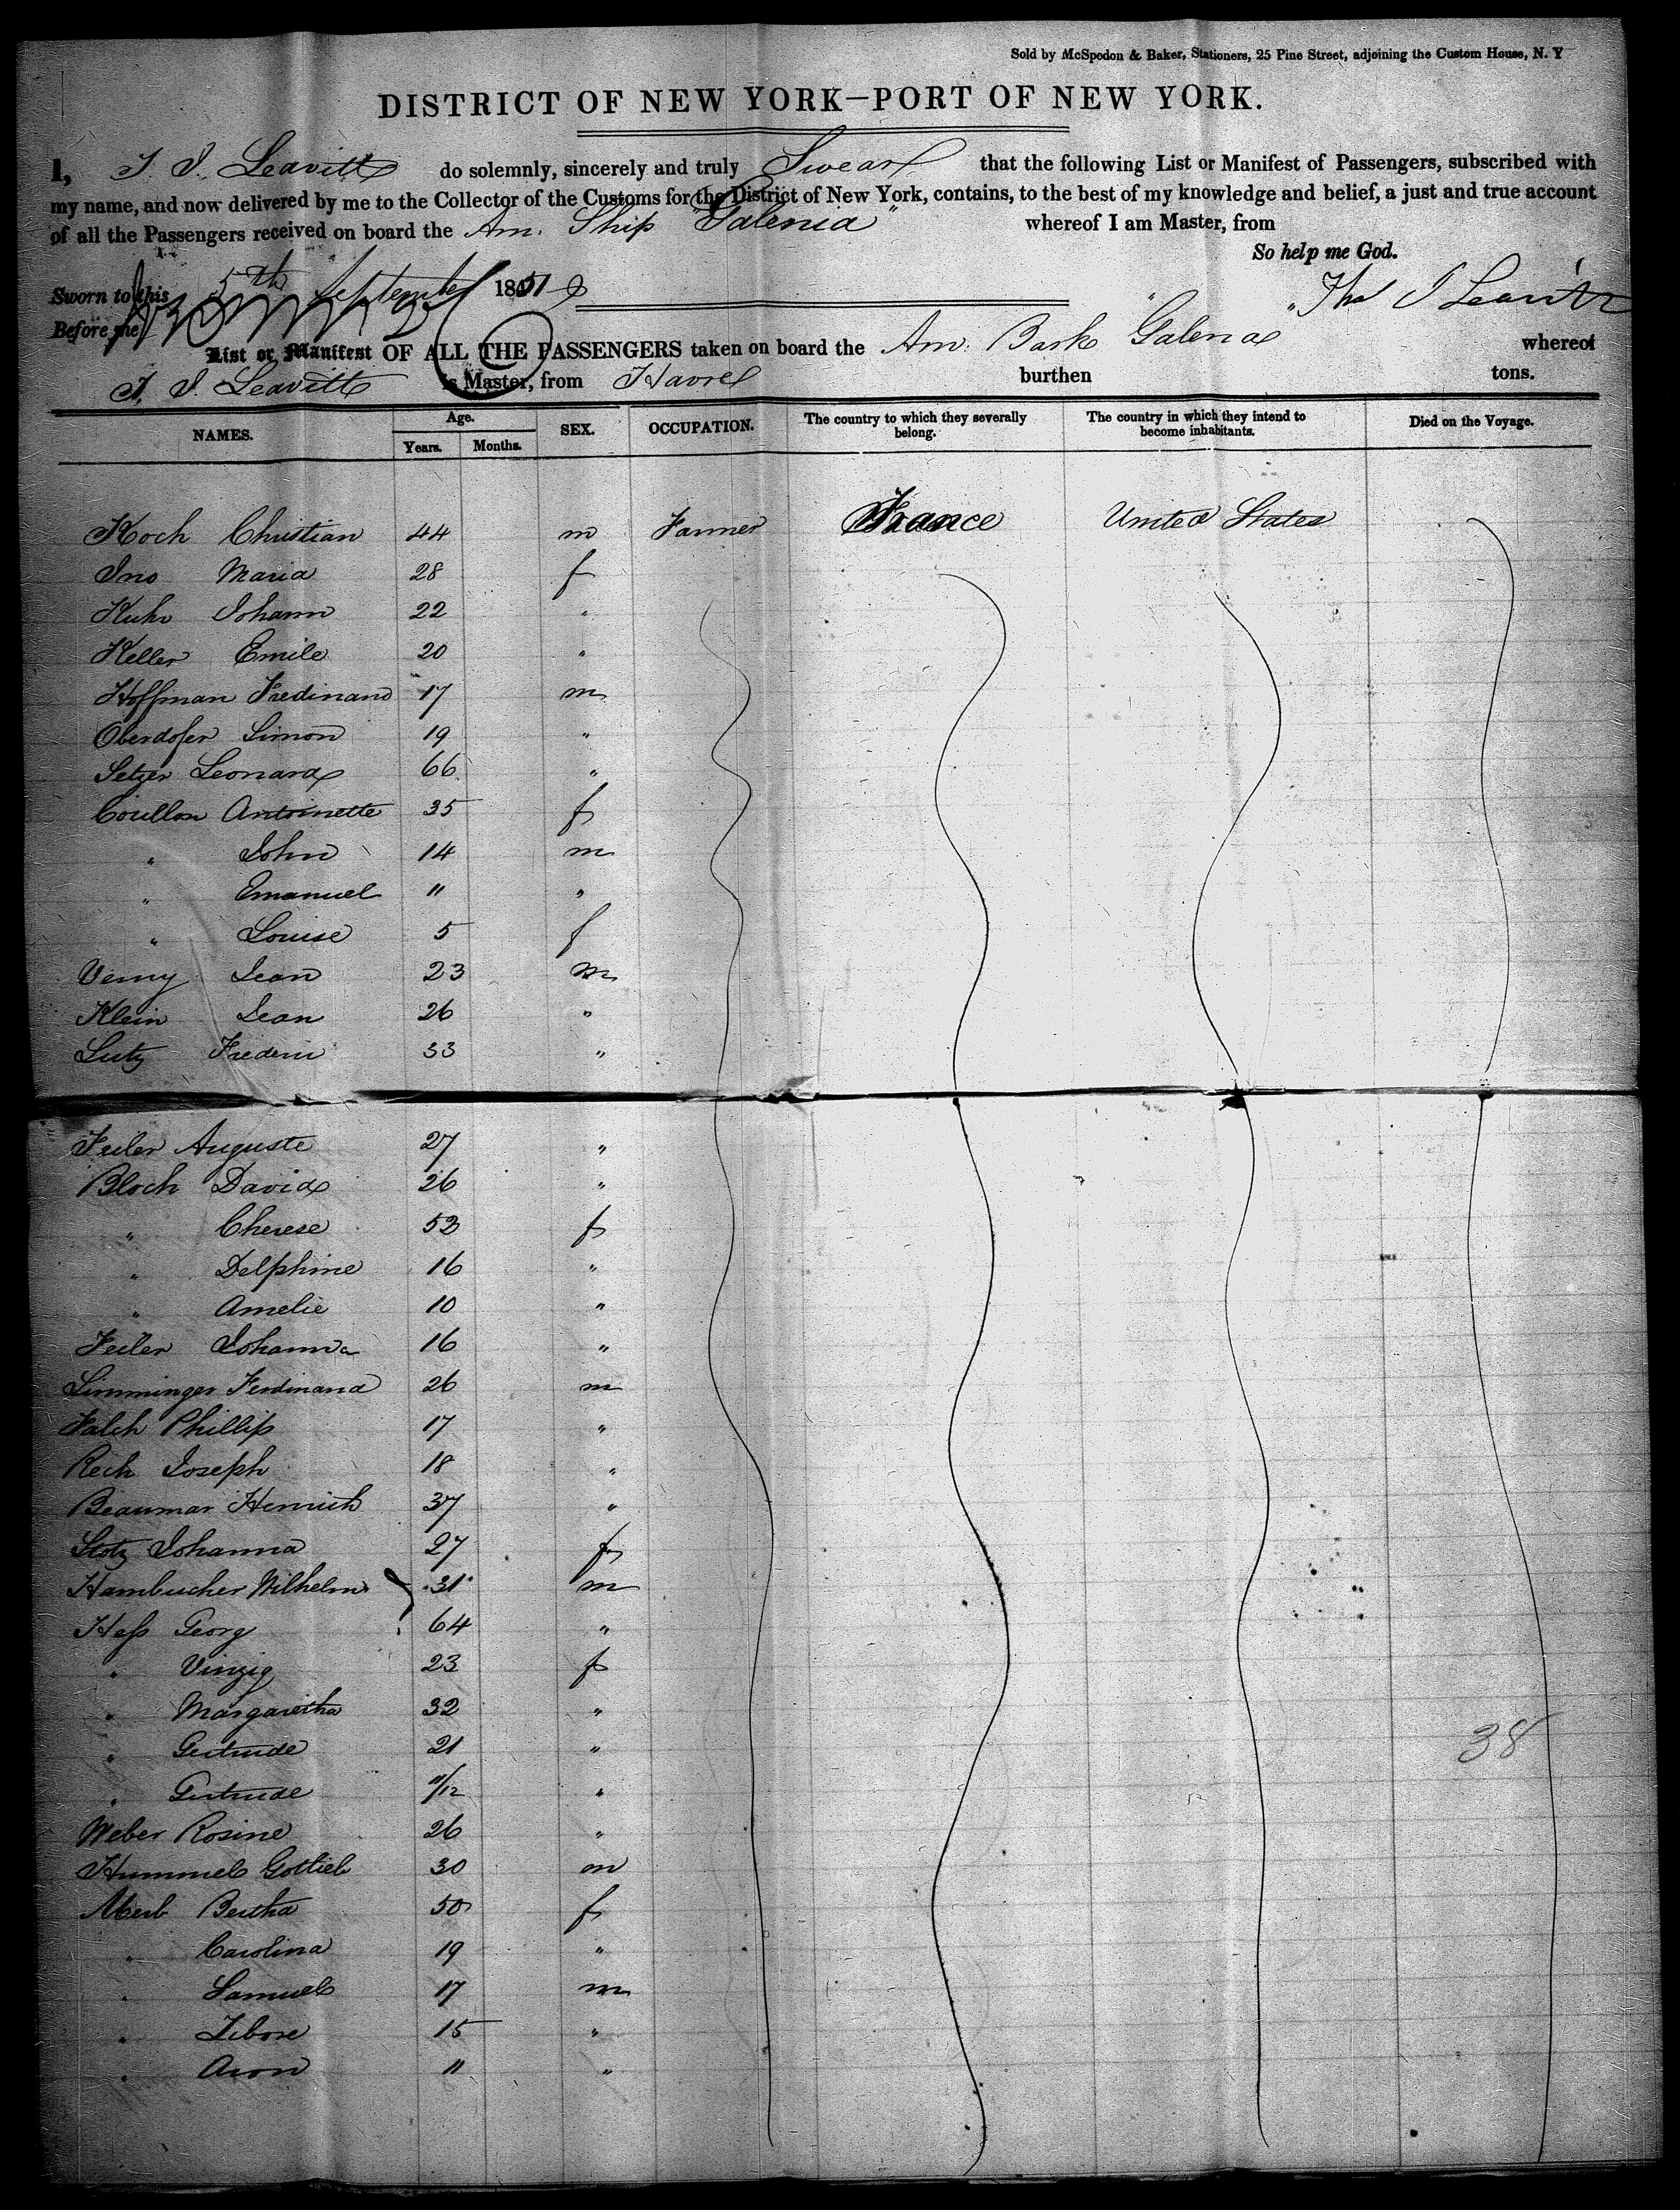 Sold by McSpedon & Baker, Stationers, 25 Pine Street, adjoining the Custom House, N. Y
DISTRICT OF NEW YORK—PORT OF NEW YORK.
I, T. J. Leavitt do solemnly, sincerely and truly Swear that the following List or Manifest of Passengers, subscribed with
my name, and now delivered by me to the Collector of the Customs for the District of New York, contains, to the best of my knowledge and belief, a just and true account
of all the Passengers received on board the Am. Ship "Galenia" whereof I am Master, from
So help me God.
Sworn to this 5th September 1851
Thos J Leavitt
Before me
List or Manifest OF ALL THE PASSENGERS taken on board the Am. Bark Galena whereof
T. J. Leavitt is Master, from Havre burthen tons.
NAMES. Age. Years. Months. SEX. OCCUPATION. The country to which they severally belong. The country in which they intend to become inhabitants. Died on the Voyage.
Koch Christian 44 m Farmer France United States
Ino Maria 28 f
Kuhn Johann 22 "
Keller Emile 20 "
Hoffman Fredinand 17 m
Oberdofer Simon 19 "
Setzer Leonard 66 "
Coullon Antoinette 35 f
" John 14 m
" Emanuel 11 "
" Louise 5 f
Verny Jean 23 m
Klein Jean 26 "
Lutz Frederic 33 "
Feiler Auguste 27 "
Bloch David 26 "
" Cherese 53 f
" Delphine 16 "
" Amelie 10 "
Feiler Johanna 16 "
Simminger Ferdinand 26 m
Falch Phillip 17 "
Rech Joseph 18 "
Beaumar Henrich 37 "
Stotz Johanna 27 f
Hambucher Wilhelm 31 m
Hess Georg 64 "
" Vinzig 23 f
" Margaretha 32 "
" Gertrude 21 "
" Gertrude 11/12 "
38
Weber Rosine 26 "
Hummel Gottlieb 30 m
Bertha 50 f
" Carolina 19 "
" Samuel 17 m
" 15 "
" Aron 11 "